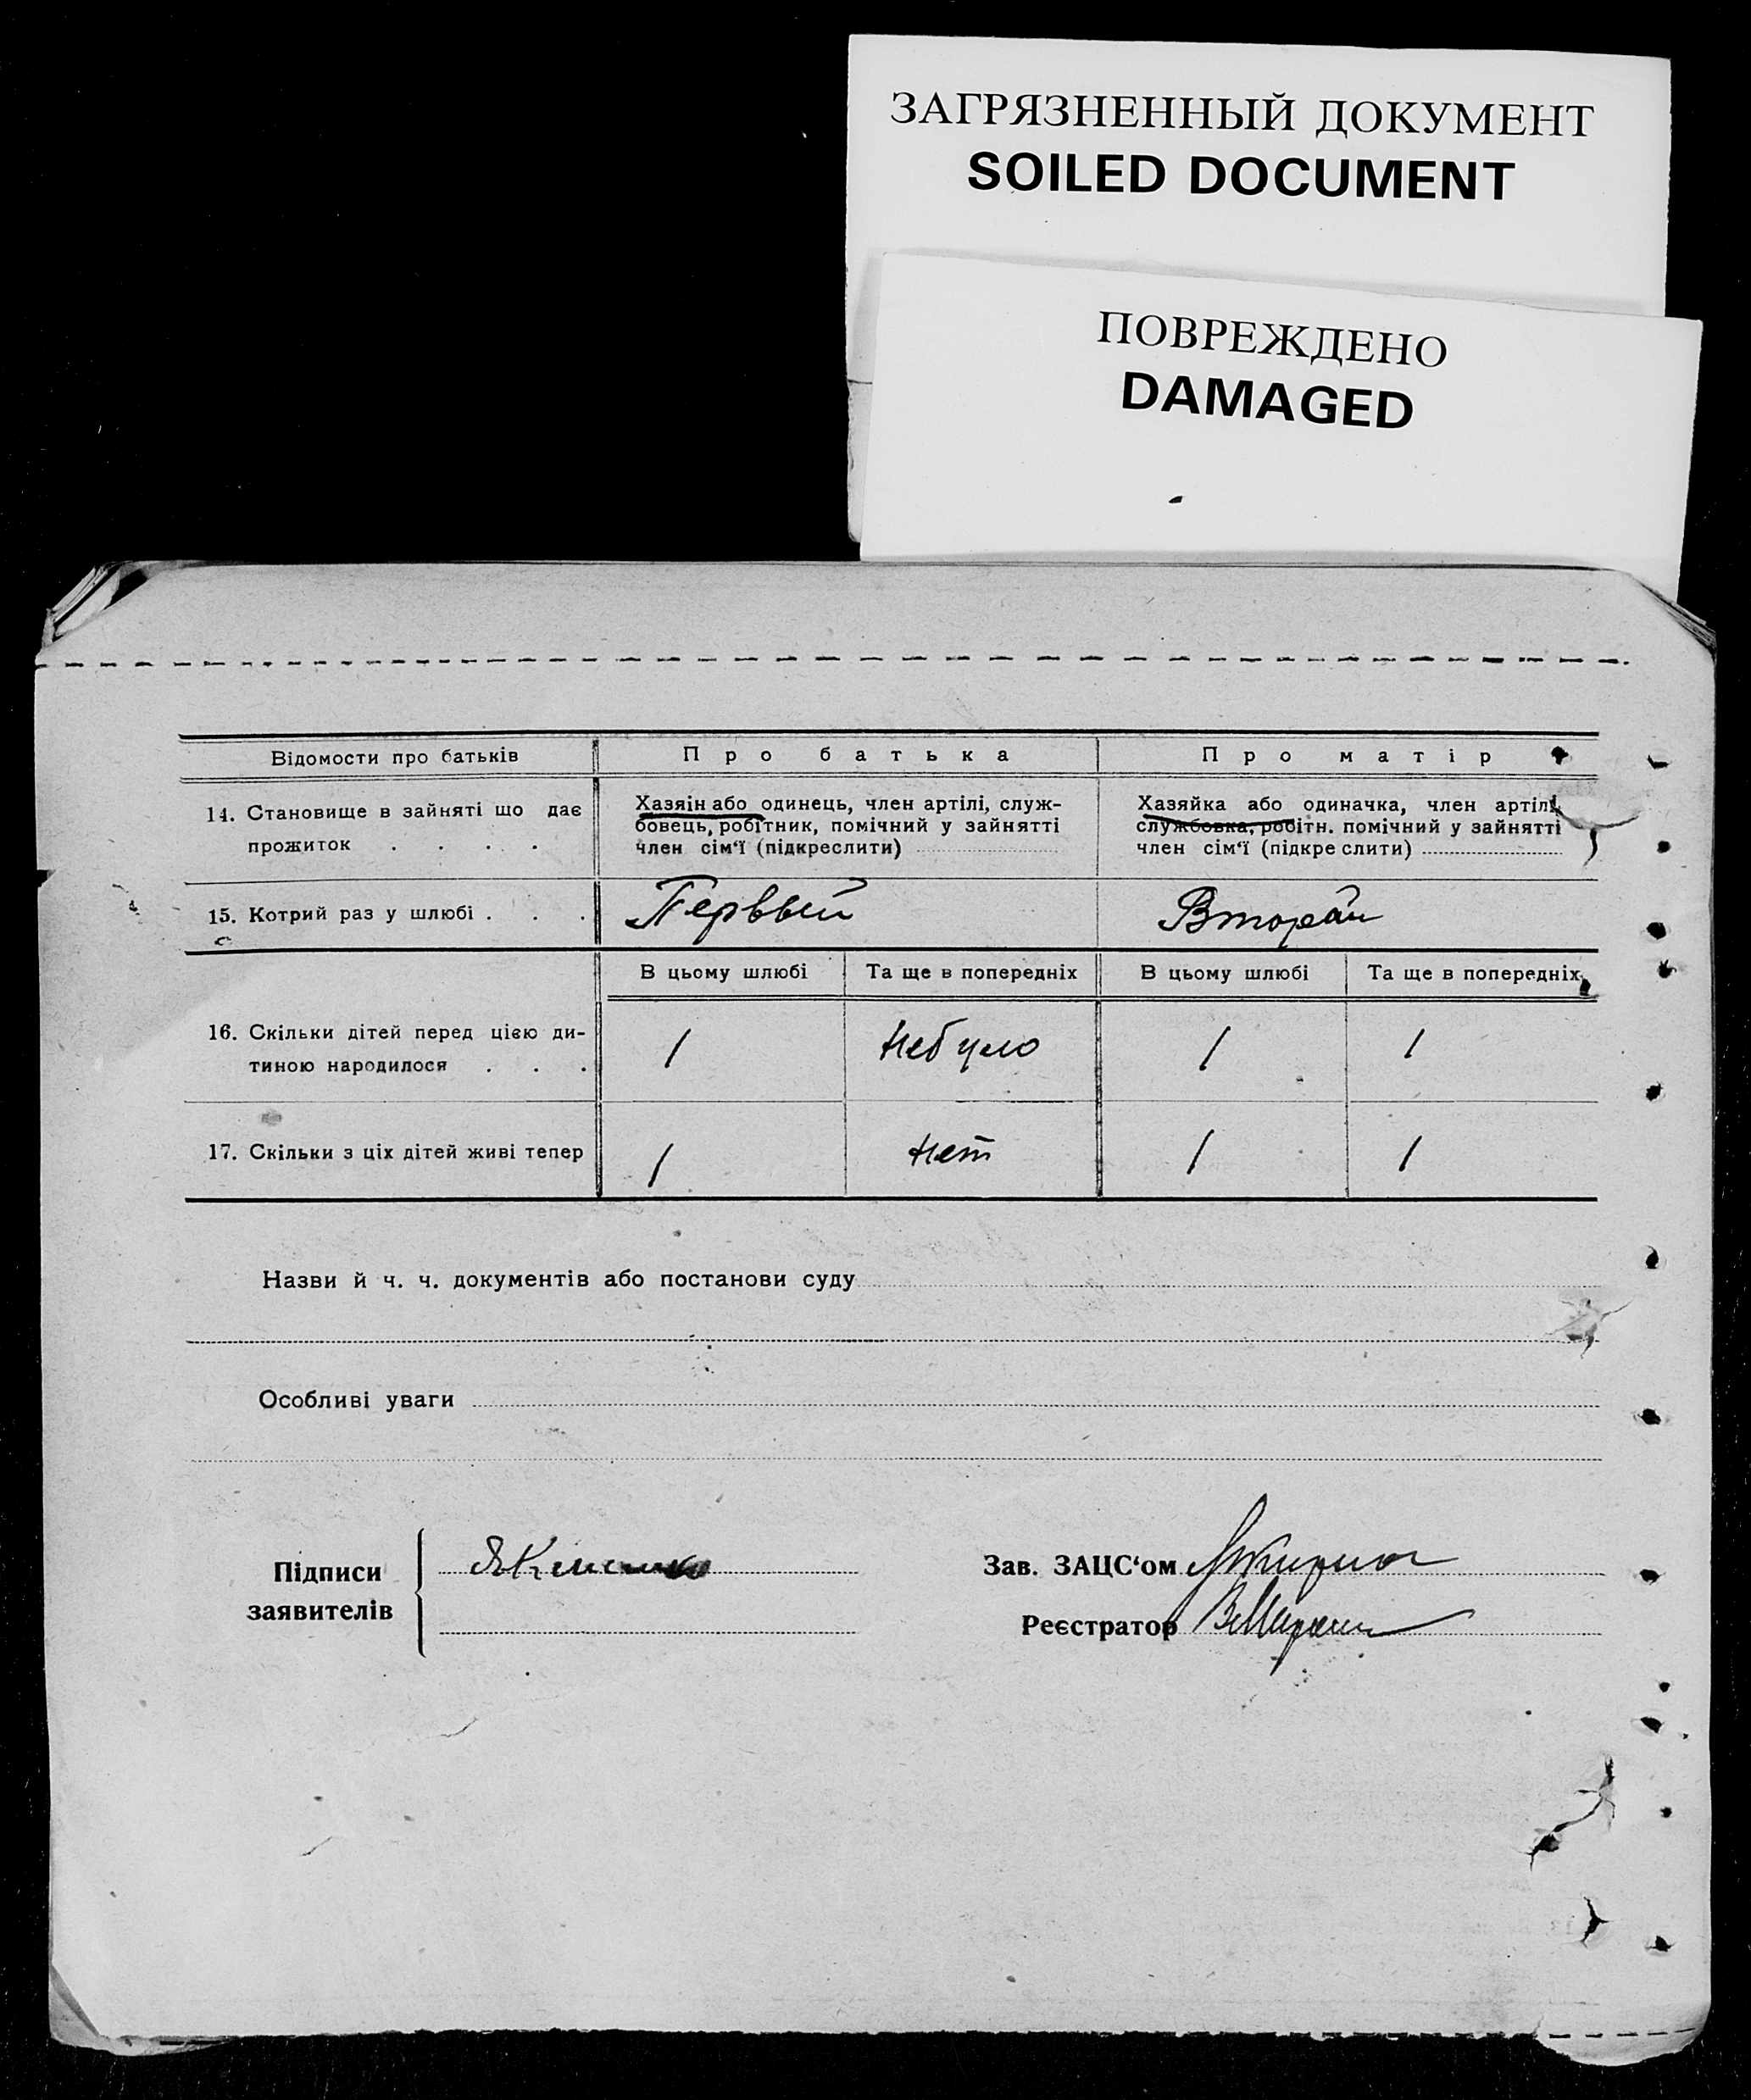 ЗАГРЯЗНЕННЫЙ ДОКУМЕНТ
SOILED DOCUMENT
ПОВРЕЖДЕНО
DAMAGED
Відомости про батьків
Про батька
Про матір
14. Становище в зайняті що дає
прожиток . . . .
Хазяін або одинець, член артілі, служ-
бовець, робітник, помічний у зайнятті
член сім‘ї (підкреслити)
Хазяйка або одиначка, член артілі,
службовка, робітн. помічний у зайнятті
член сім‘ї (підкре слити)
15. Котрий раз у шлюбі . . .
Первый
Второй
В цьому шлюбі
Та ще в попередніх
В цьому шлюбі
Та ще в попередніх
16. Скільки дітей перед цією ди-
тиною народилося . . .
1
небуло
1
1
17. Скільки з ціх дітей живі тепер
1
нет
1
1
Назви й ч. ч. документів або постанови суду
Особливі уваги
Підписи
заявителів
Зав. ЗАЦС‘ом
Реєстратор